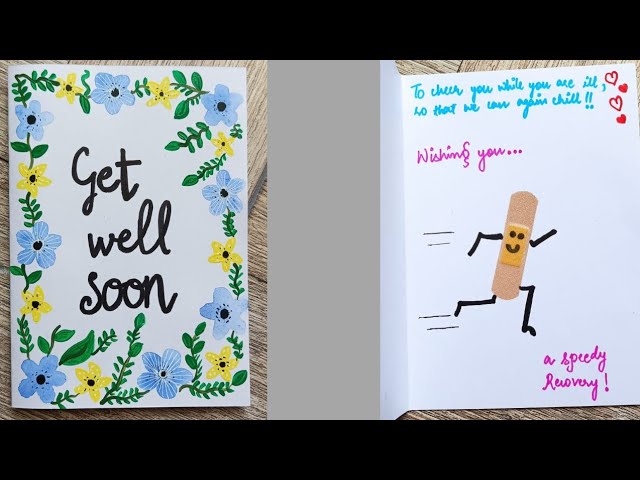 Get
well
soon
To cheer you while you are ill,
so that we can again chill!!
Wishing you...
a speedy
Recovery!